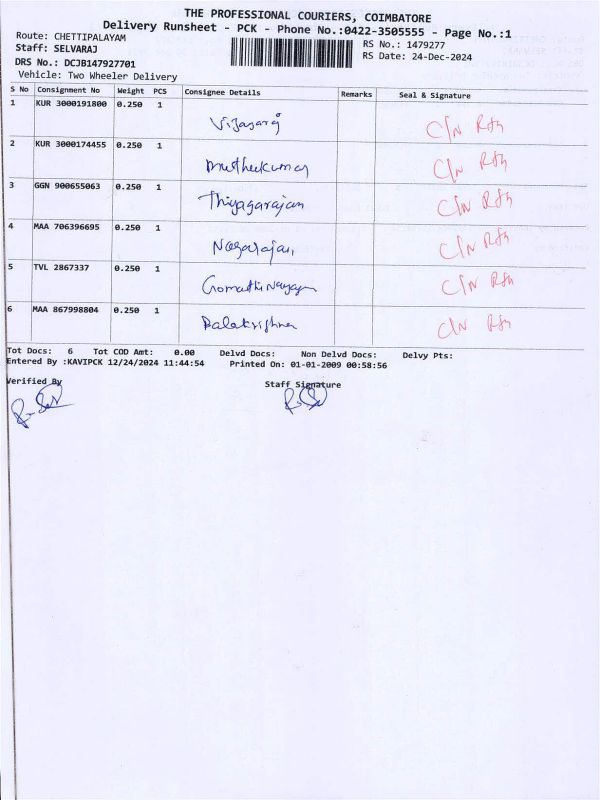 THE PROFESSIONAL COURIERS, COIMBATORE
Delivery Runsheet - PCK - Phone No.:0422-3505555 - Page No.:1
Route: CHETTIPALAYAM
Staff: SELVARAJ
DRS No.: DCJB147927701
Vehicle: Two Wheeler Delivery
RS No.: 1479277
RS Date: 24-Dec-2024
S No Consignment No Weight PCS Consignee Details Remarks Seal & Signature
1 KUR 3000191800 0.250 1 Vijayaraj C/N
2 KUR 3000174455 0.250 1 Muthukumar C/N
3 GGN 900655063 0.250 1 Thiyagarajan C/N
4 MAA 706396695 0.250 1 Nagarajan C/N
5 TVL 2867337 0.250 1 C/N
6 MAA 867998804 0.250 1 Balakrishnan C/N
Tot Docs: 6 Tot COD Amt: 0.00 Delvd Docs: Non Delvd Docs: Delvy Pts:
Entered By :KAVIPCK 12/24/2024 11:44:54 Printed On: 01-01-2009 00:58:56
Verified By Staff Signature